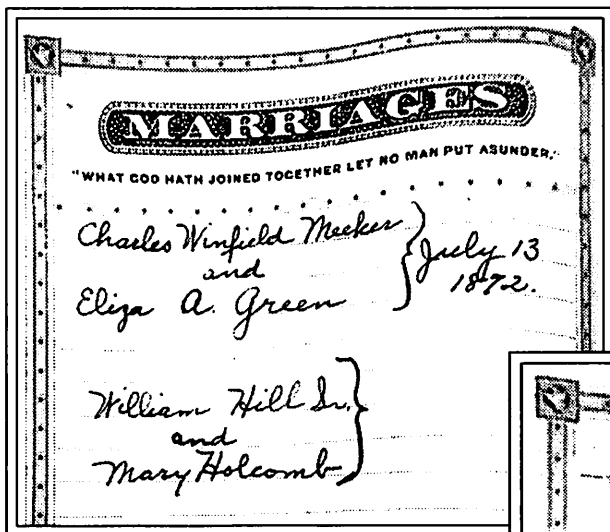 MARRIAGES
"WHAT GOD HATH JOINED TOGETHER LET NO MAN PUT ASUNDER."
Charles Winfield Meeker
and
Eliza A. Green
July 13
1872.
William Hill Sr.
and
Mary Holcomb